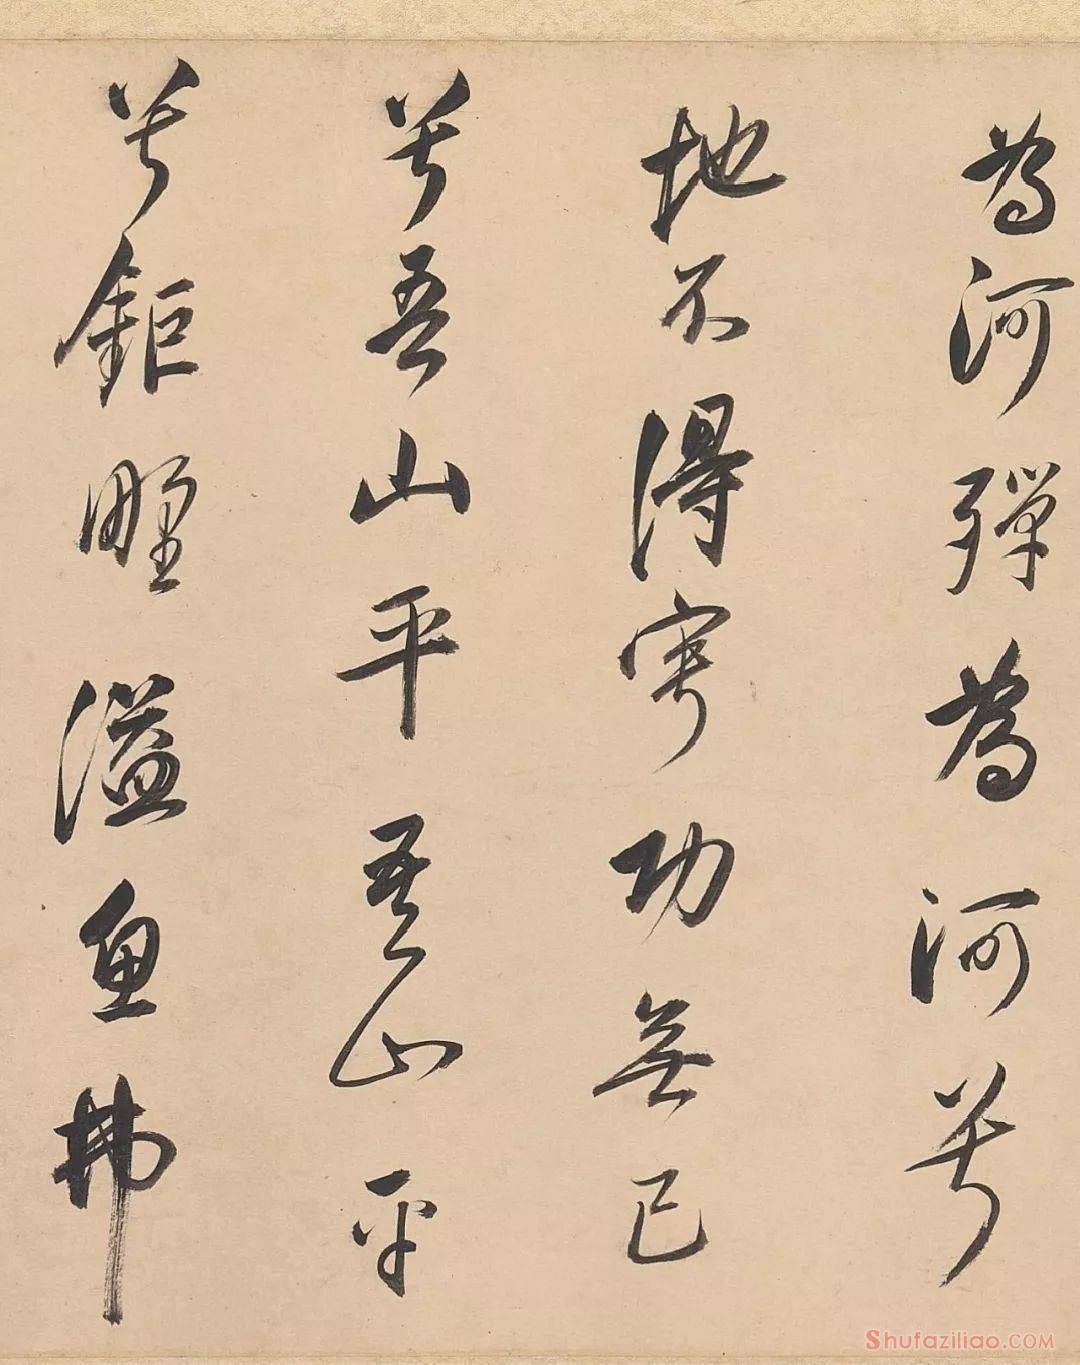 為河殫為河兮
地不得寧功無已
兮吾山平吾山平
兮鉅野溢魚拂
Shufaziliao.COM